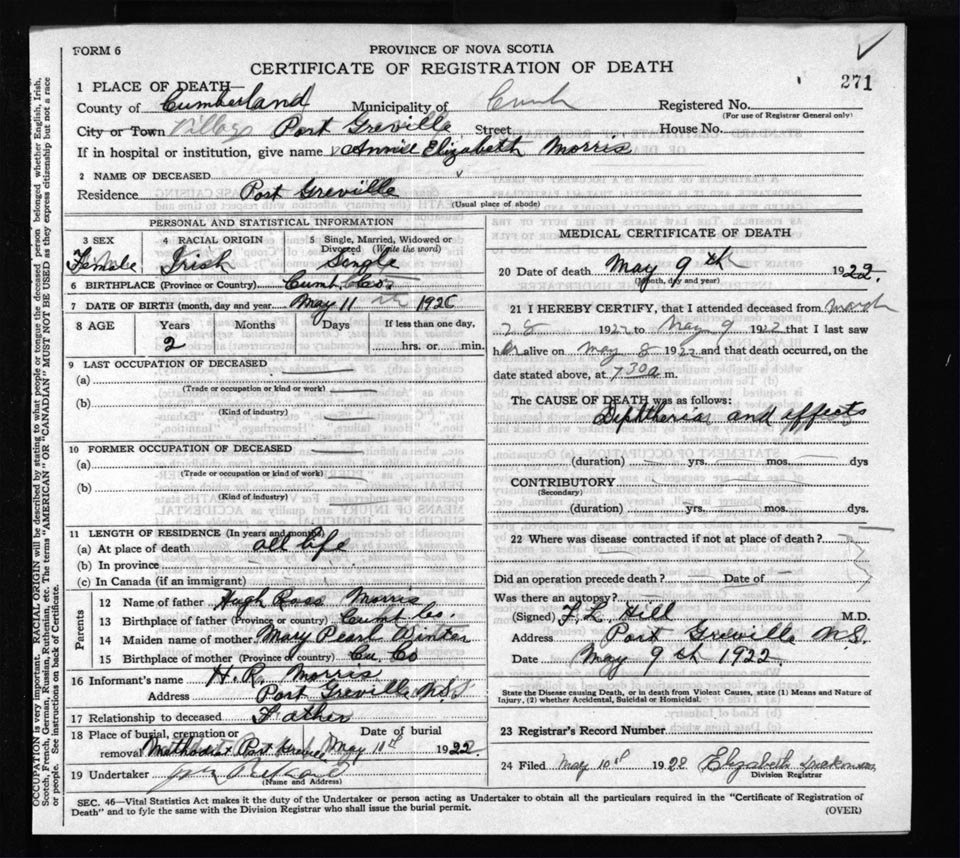 FORM 6
PROVINCE OF NOVA SCOTIA
CERTIFICATE OF REGISTRATION OF DEATH
271
1 PLACE OF DEATH—
County of Cumberland Municipality of Cumb Registered No.
(For use of Registrar General only)
City or Town Village Port Greville Street House No.
If in hospital or institution, give name Annie Elizabeth Morris
2 NAME OF DECEASED
Residence Port Greville
(Usual place of abode)
PERSONAL AND STATISTICAL INFORMATION
3 SEX 4 RACIAL ORIGIN 5 Single, Married, Widowed or Divorced (Write the word)
Female Irish Single
6 BIRTHPLACE (Province or Country) Cumb. Co.
7 DATE OF BIRTH (month, day and year) May 11 192
8 AGE Years Months Days If less than one day,
2 hrs. or min.
9 LAST OCCUPATION OF DECEASED
(a)
(Trade or occupation or kind or work)
(b)
(Kind of industry)
10 FORMER OCCUPATION OF DECEASED
(a)
(Trade or occupation or kind of work)
(b)
(Kind of industry)
11 LENGTH OF RESIDENCE (In years and months)
(a) At place of death all life
(b) In province
(c) In Canada (if an immigrant)
Parents
12 Name of father Hugh Ross Morris
13 Birthplace of father (Province or country) Cumb Co.
14 Maiden name of mother Mary Pearl Winter
15 Birthplace of mother (Province or country) Cu. Co
16 Informant's name H. R. Morris
Address Port Greville N.S.
17 Relationship to deceased Father
18 Place of burial, cremation or removal Date of burial
Methodist Port Greville May 10th 1922.
19 Undertaker
(Name and Address)
MEDICAL CERTIFICATE OF DEATH
20 Date of death May 9th 1922.
(Month, day and year)
21 I HEREBY CERTIFY, that I attended deceased from March
28 1922 to May 9 1922 that I last saw
her alive on May 8 1922 and that death occurred, on the
date stated above, at 7 30 a m.
The CAUSE OF DEATH was as follows:
Diphtheria and affects
(duration) yrs. mos. dys
CONTRIBUTORY
(Secondary)
(duration) yrs. mos. dys.
22 Where was disease contracted if not at place of death?
Did an operation precede death? Date of
Was there an autopsy?
(Signed) F. L. Hill M.D.
Address Port Greville N.S.
Date May 9th 1922.
State the Disease causing Death, or in death from Violent Causes, state (1) Means and Nature of
Injury, (2) whether Accidental, Suicidal or Homicidal.
23 Registrar's Record Number
24 Filed May 10th 1922 Elizabeth
Division Registrar
SEC. 46—Vital Statistics Act makes it the duty of the Undertaker or person acting as Undertaker to obtain all the particulars required in the "Certificate of Registration of
Death" and to fyle the same with the Division Registrar who shall issue the burial permit.
(OVER)
OCCUPATION is very important. RACIAL ORIGIN will be described by stating to what people or tongue the deceased person belonged whether English, Irish,
Scotch, French, German, Russian, Ruthenian, etc. The terms "AMERICAN" or "CANADIAN" MUST NOT BE USED as they express citizenship but not a race
or people. See instructions on back of Certificate.